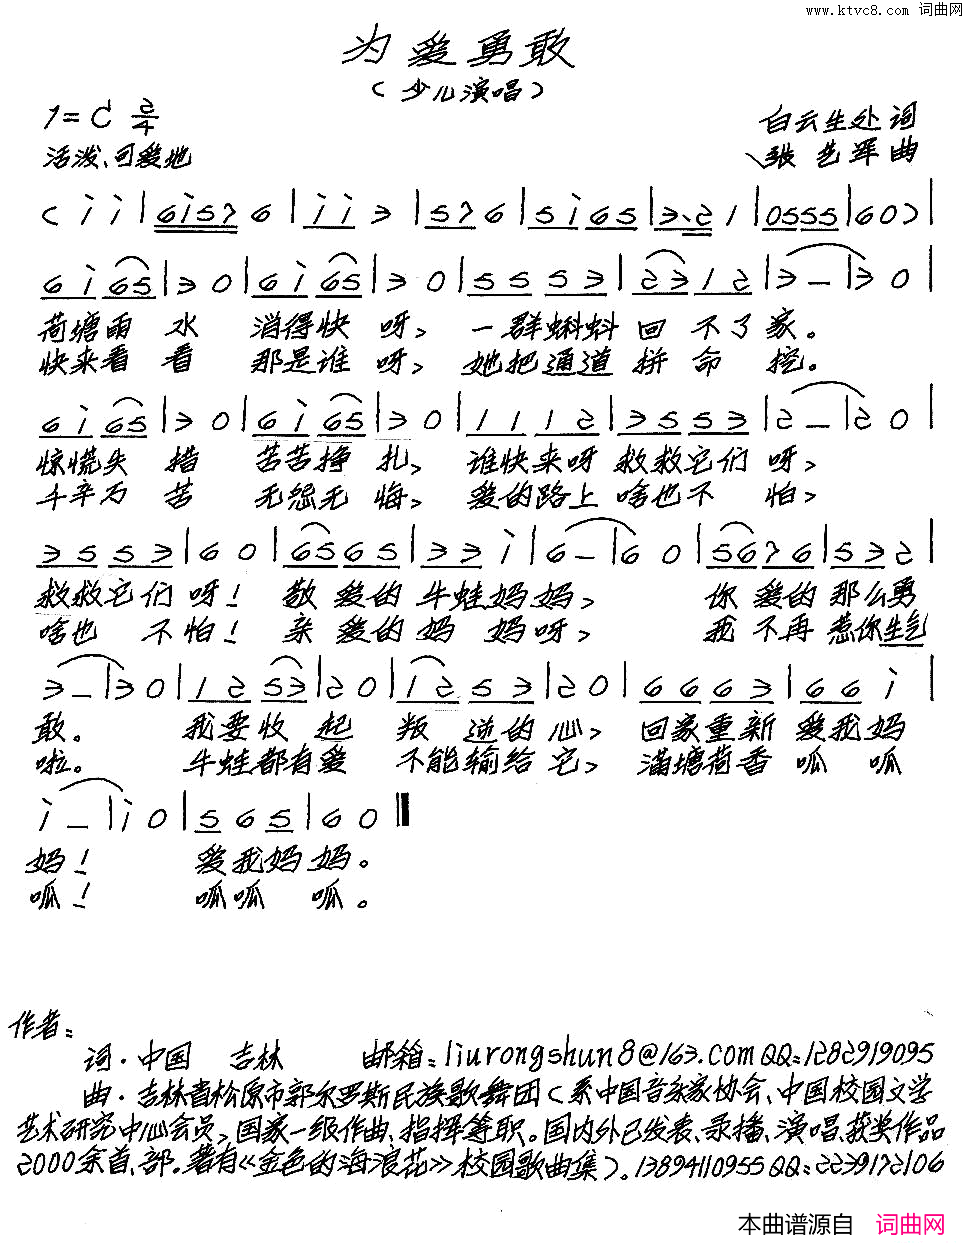 www.ktvc8.com 词曲网
为爱勇敢
（少儿演唱）
1=C 2/4
白云生处 词
活泼、可爱地
张艺军 曲
( i i | 6 i 5 7 6 | i i 3 | 5 7 6 | 5 i 6 5 | 3. 2 1 | 0 5 5 5 | 6 0 ) |
6 i 6 5 | 3 0 | 6 i 6 5 | 3 0 | 5 5 5 3 | 2 3 1 2 | 3 – | 3 0 |
荷塘雨 水 消得快 呀， 一群蝌蚪 回 不了 家。
快来看 看 那是谁 呀， 她把通道 拼 命 挖。
6 i 6 5 | 3 0 | 6 i 6 5 | 3 0 | 1 1 1 2 | 3 5 5 3 | 2 – | 2 0 |
惊慌失 措 苦苦挣 扎， 谁快来呀 救救它们 呀，
千辛万 苦 无怨无 悔， 爱的路上 啥也不 怕，
3 5 5 3 | 6 0 | 6 5 6 5 | 3 3 i | 6 – | 6 0 | 5 6 7 6 | 5 3 2 |
救救它们 呀！ 敬 爱的 牛蛙妈妈， 你 爱的 那么勇
啥也 不 怕！ 亲 爱的 妈 妈呀， 我 不再 惹你生气
3 – | 3 0 | 1 2 5 3 | 2 0 | 1 2 5 3 | 2 0 | 6 6 6 3 | 6 6 i |
敢。 我要收 起 叛 逆的 心， 回家重新 爱我妈
啦。 牛蛙都有爱 不能输给 它， 满塘荷香 呱 呱
i – | i 0 | 5 6 5 | 6 0 ‖
妈！ 爱我妈妈。
呱！ 呱呱 呱。
作者：
词．中国 吉林 邮箱：liurongshun8@163.com QQ：1282919095
曲．吉林省松原市郭尔罗斯民族歌舞团（系中国音乐家协会、中国校园文学
艺术研究中心会员，国家一级作曲、指挥等职。国内外已发表、录播、演唱、获奖作品
2000余首、部。著有《金色的海浪花》校园歌曲集）。13894110955 QQ：2239172106
本曲谱源自 词曲网